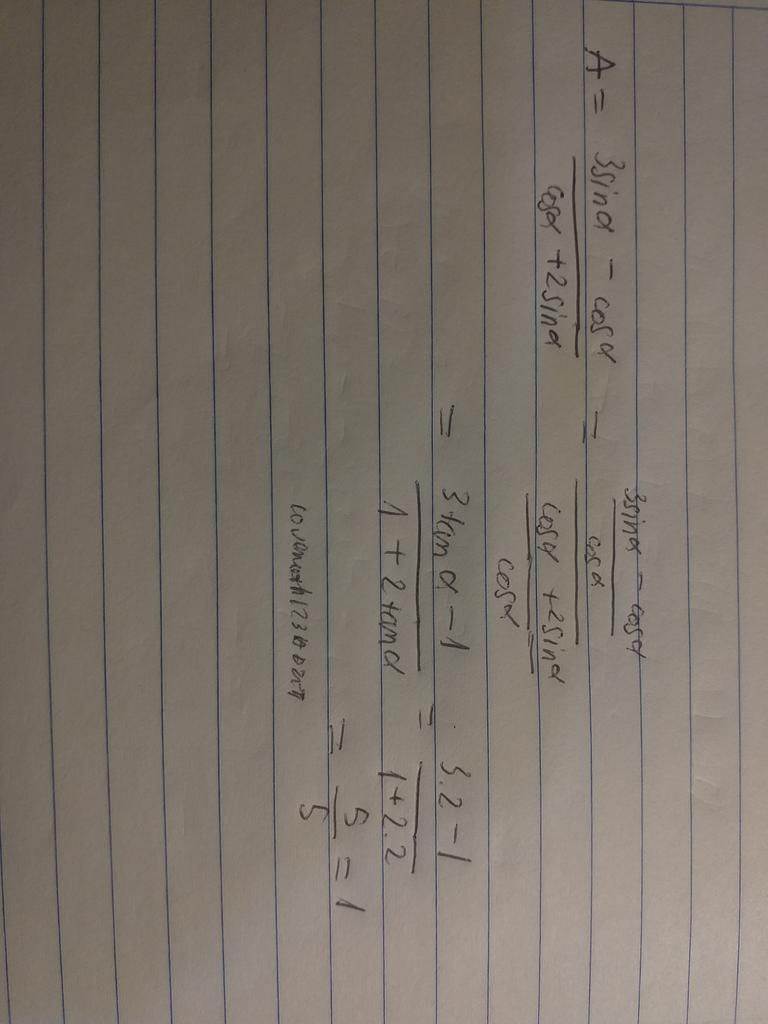 A = (3sinα - cosα)/(cosα + 2sinα) = ((3sinα - cosα)/cosα)/((cosα + 2sinα)/cosα)
= (3tanα - 1)/(1 + 2tanα) = (3.2 - 1)/(1 + 2.2)
= 5/5 = 1